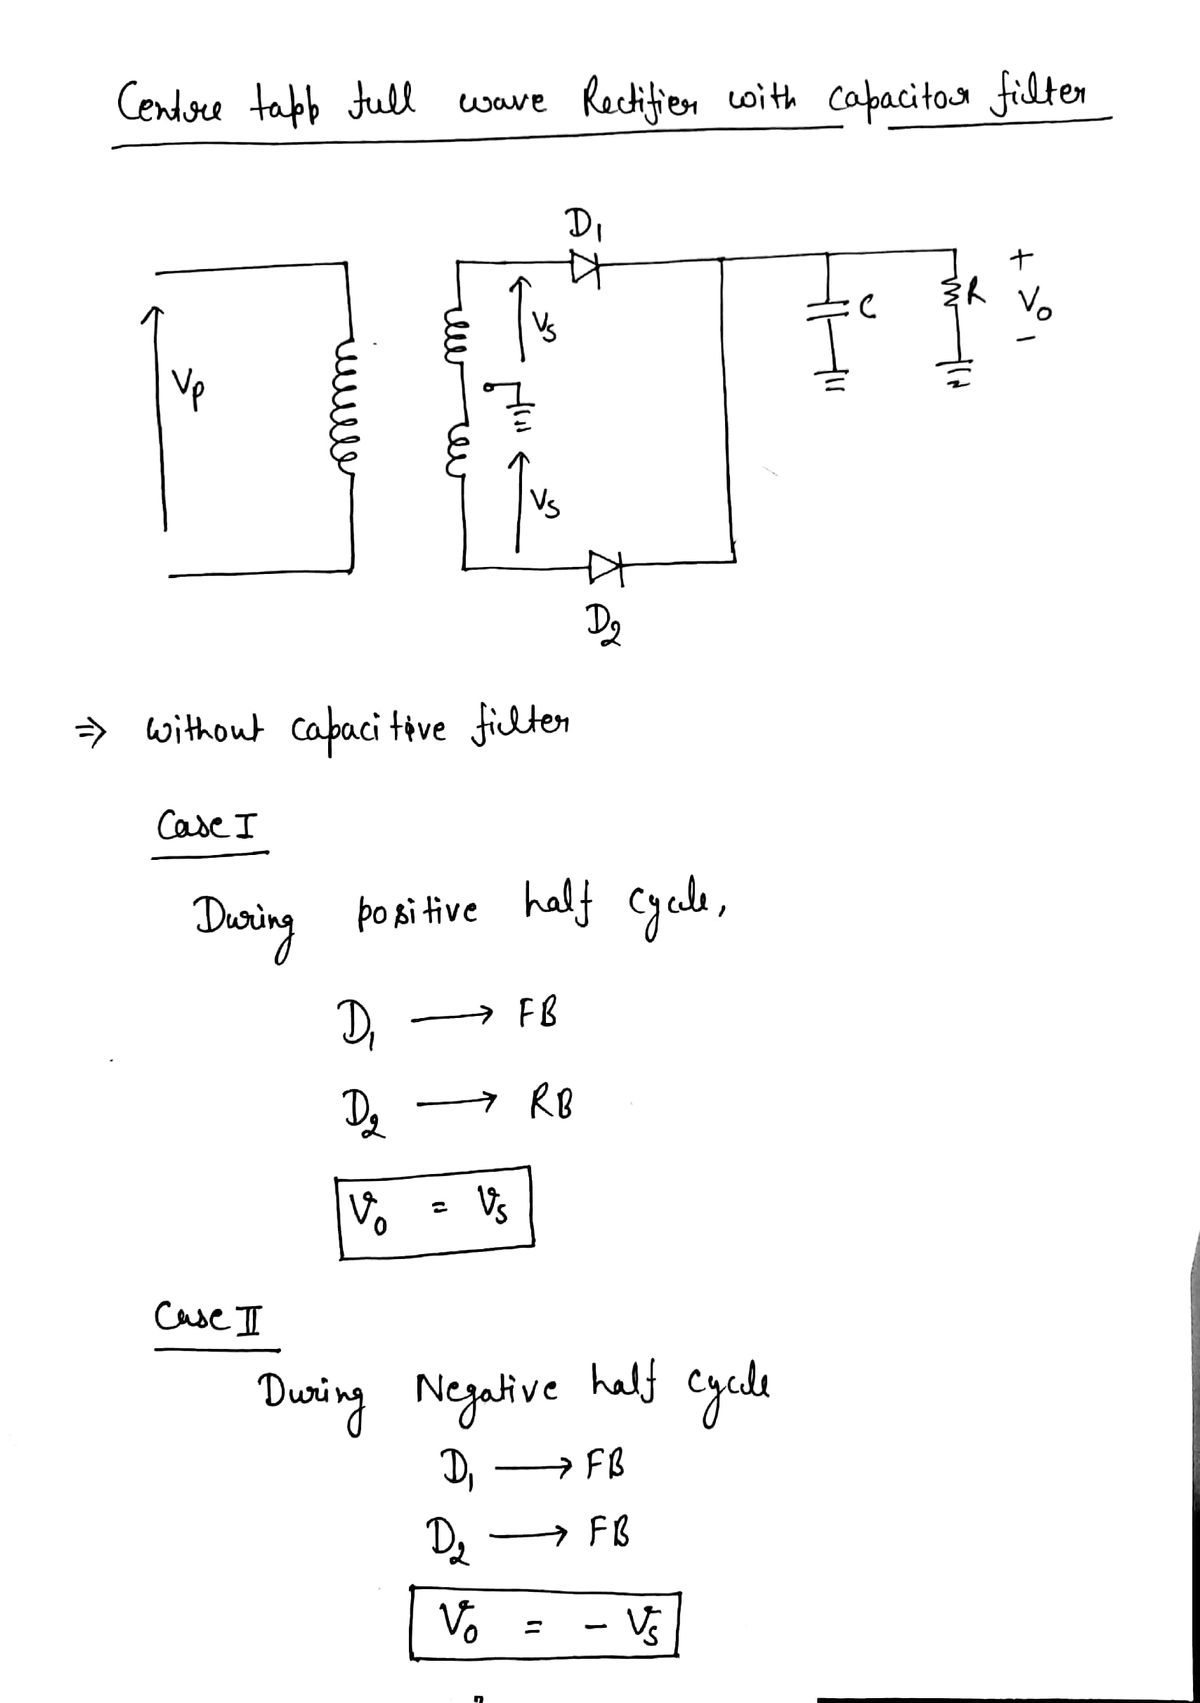 Centre tapp full wave Rectifier with capacitor filter
D1
Vp
Vs
C
R
+
Vo
-
Vs
D2
⇒ without capacitive filter
Case I
During positive half cycle,
D1 → FB
D2 → RB
Vo = Vs
Case II
During Negative half cycle
D1 → FB
D2 → FB
Vo = - Vs